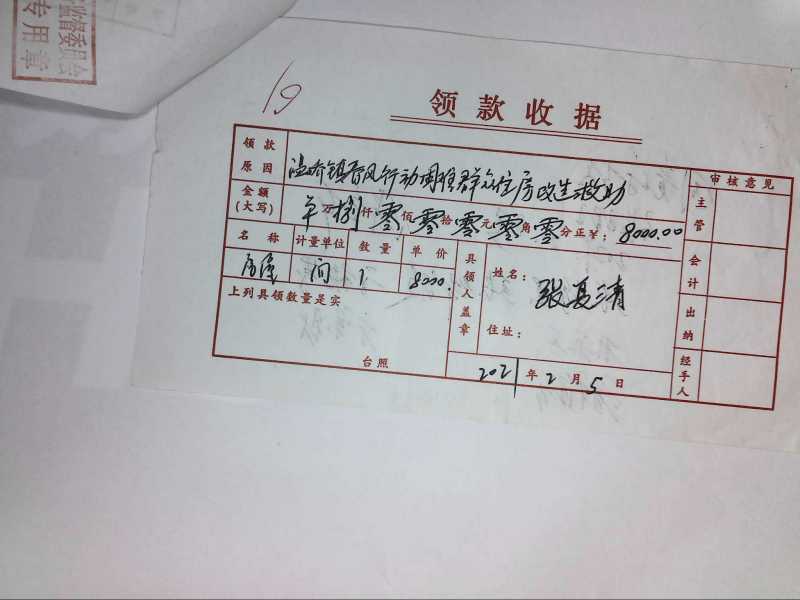 监督委员会
专用章
19
领款收据
领款原因 温峤镇春风行动困难群众住房改造救助
审核意见
金额(大写) 万捌仟零佰零拾零元零角零分正¥:8000.00
主管
名称 计量单位 数量 单价
房屋 间 1 8000.
具领人盖章 姓名:张夏清
会计
上列具领数量是实
住址:
出纳
台照
2021年2月5日
经手人